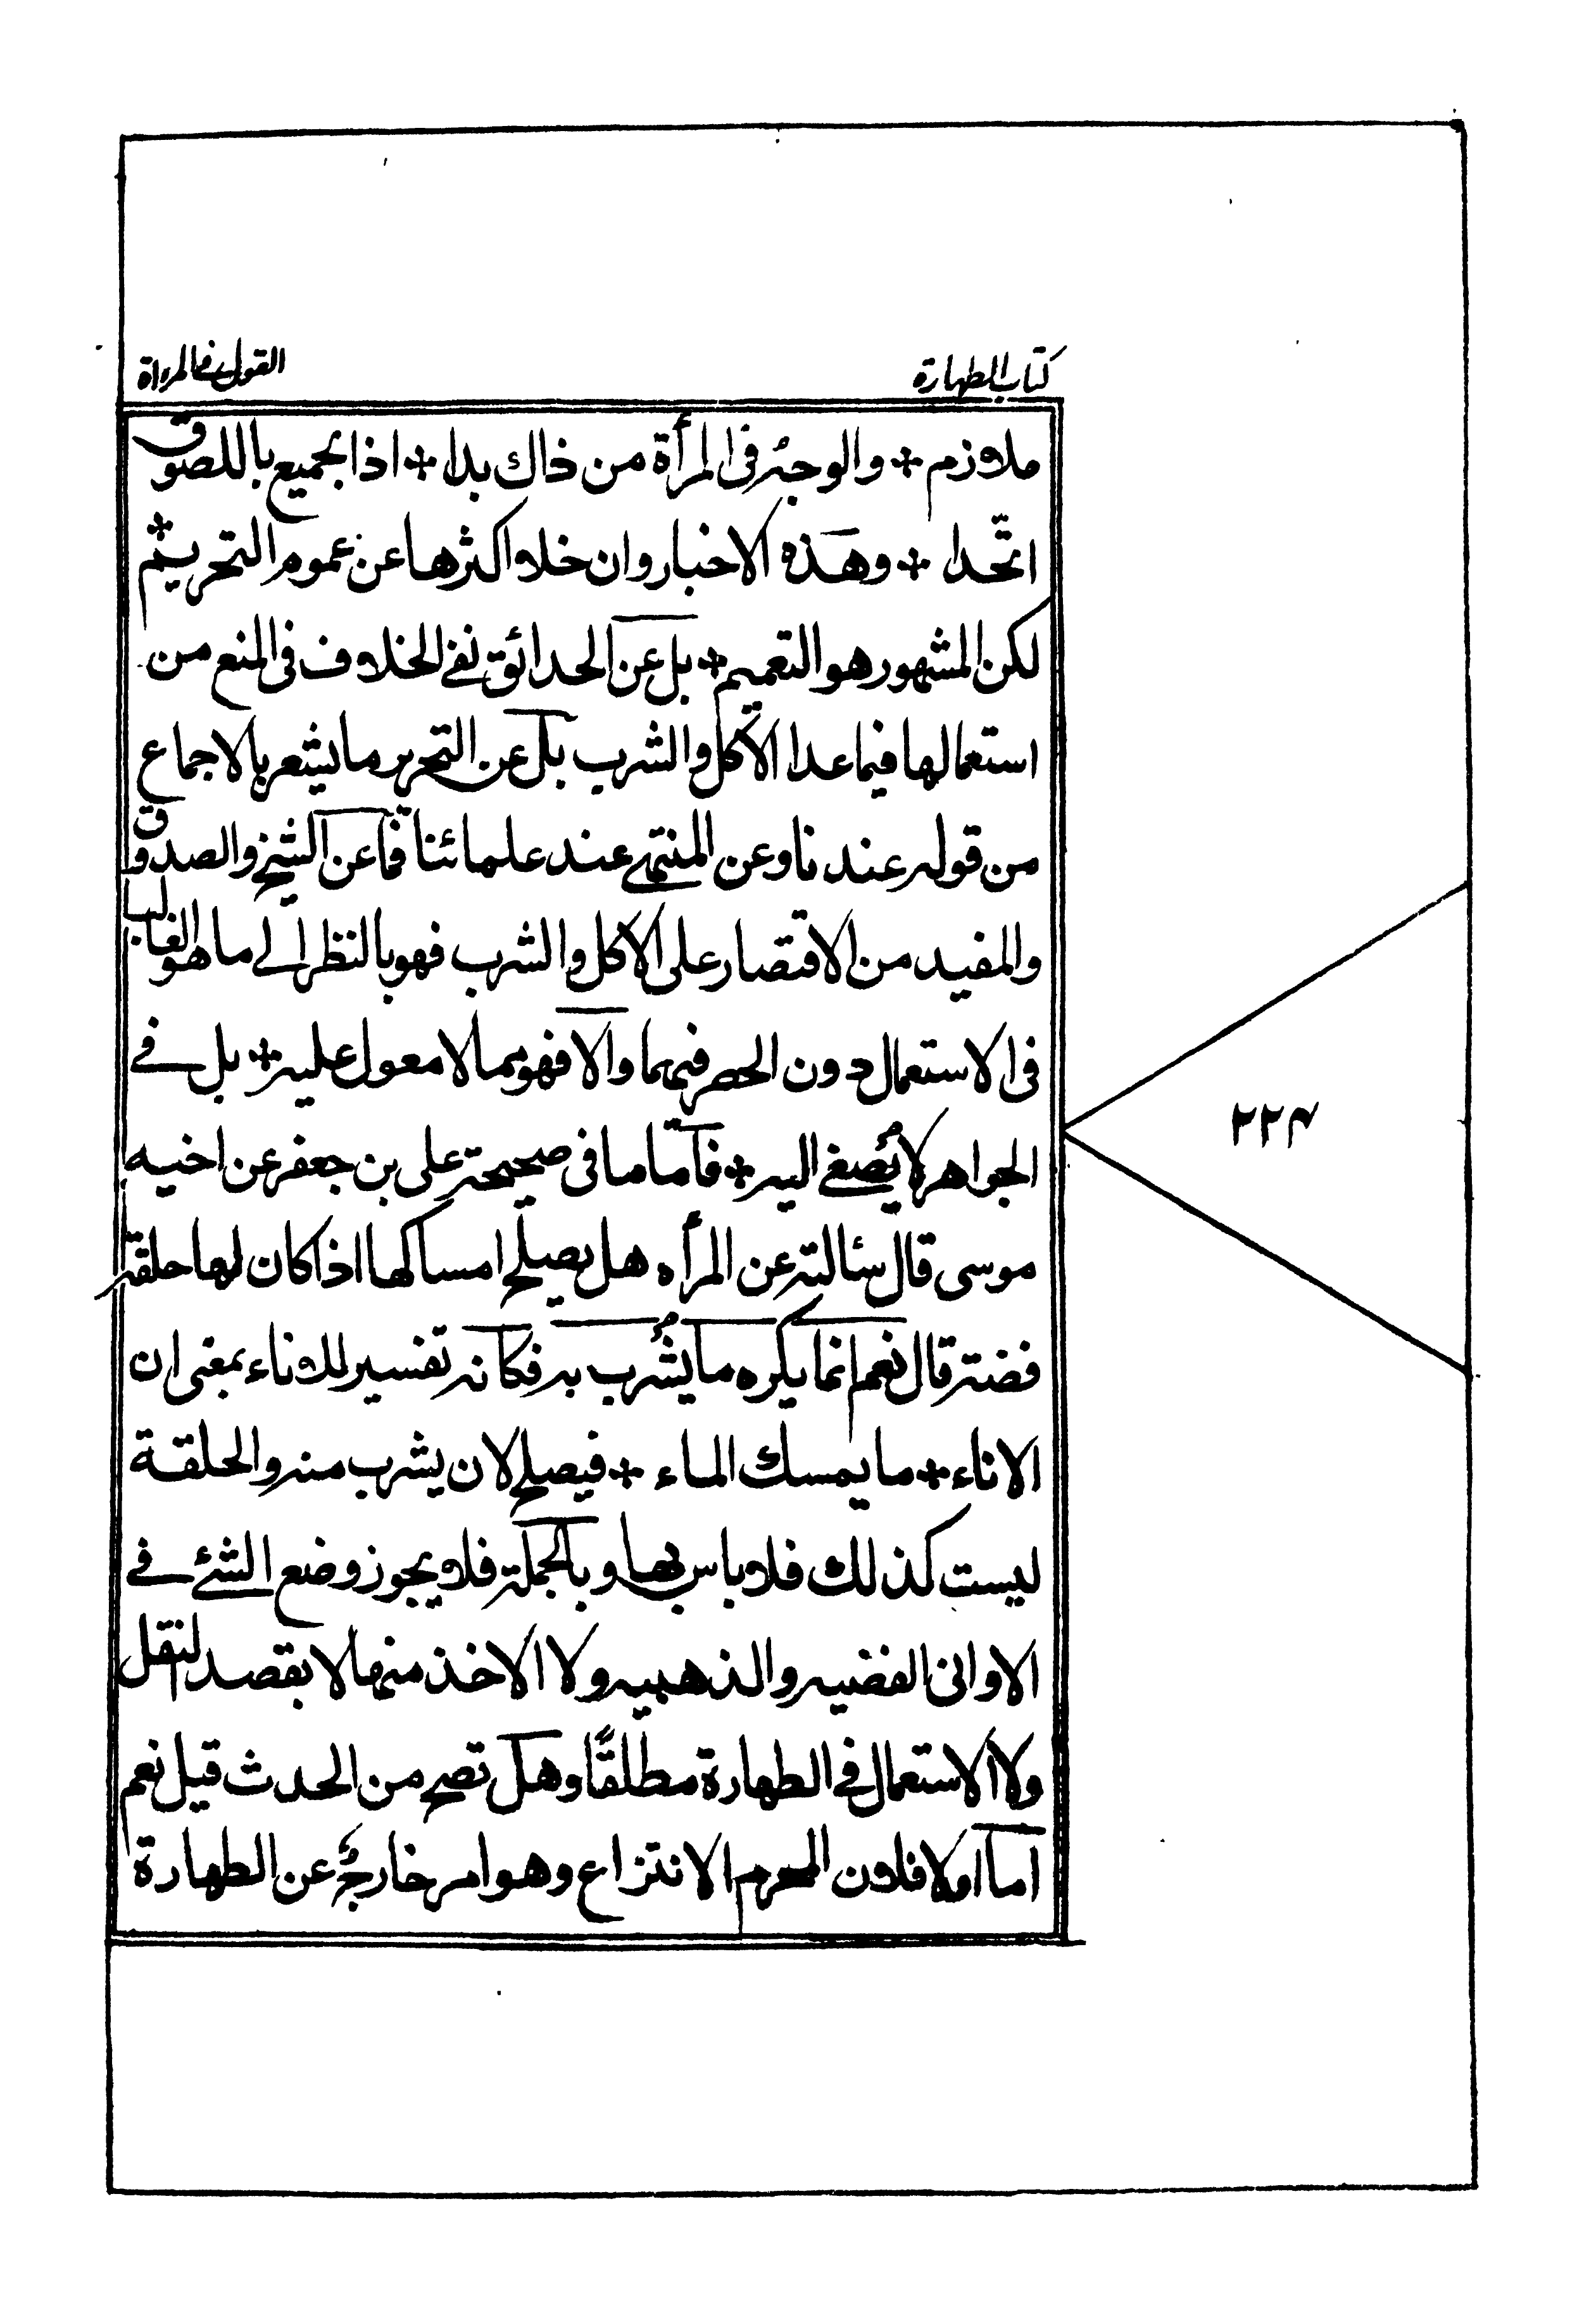 كتاب الطهارة
القول في المرءاة
ملازم * والوجه في المرأة من ذاك بدا * اذا لجميع باللصوق
اتّحدا * وهذه الاخبار وان خلا اكثرها عن عموم التحريم *
لكن المشهور هو التعميم * بل عن الحدائق نفي الخلاف في المنع من
استعمالها فيما عدا الأكل والشرب بل عن التحرير ما يشعر بالاجماع
من قوله عندنا وعن المنتهى عند علمائنا فما عن الشيخ والصدوق
والمفيد من الاقتصار على الاكل والشرب فهو بالنظر الى ما هو الغالب
في الاستعمال دون الحصر فيهما والا فهو مما لا معول عليه * بل في
الجواهر لا يُصغى اليه * فاما ما في صحيحة علي بن جعفر عن اخيه
موسى قال سئالته عن المرأه هل يصلح امساكها اذا كان لها حلقة
فضة قال نعم انما يكره ما يُشرب به فكانه تفسير للاناء بمعنى ان
الاناء * ما يمسك الماء * فيصلح لان يشرب منه والحلقة
ليست كذلك فلا باس بها وبالجملة فلا يجوز وضع الشئ في
الاواني الفضيه والذهبيه ولا الاخذ منها لا بقصد لنقل
ولا الاستعمال في الطهارة مطلقًا وهل تصح من الحدث قيل نعم
اما اولا فلان المحرم الانتزاع وهو امر خارج عن الطهارة
٢٢٤